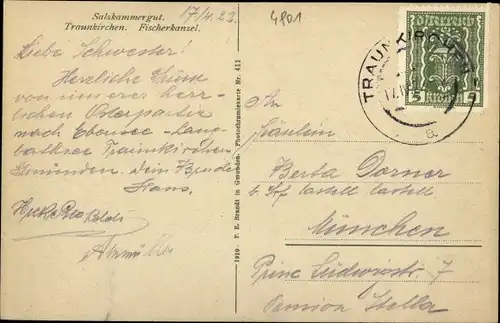 Salzkammergut.
Traunkirchen. Fischerkanzel.
17/4.23
4801
Liebe Schwester!
Herzliche Grüsse
von unserer herr-
lichen Osterpartie
nach Ebensee - Lang-
bathsee Traunkirchen
Gmunden. Dein Bruder
Hans.
1919 F. E. Brandt in Gmunden. Photochromiekarte Nr. 411
Österreich
5 Kronen 5
TRAUNKIRCHEN
a
An
Fräulein
Berta Dorner
b. Castell Castell
München
Prinz Ludwigstr. 7
Pension Stella